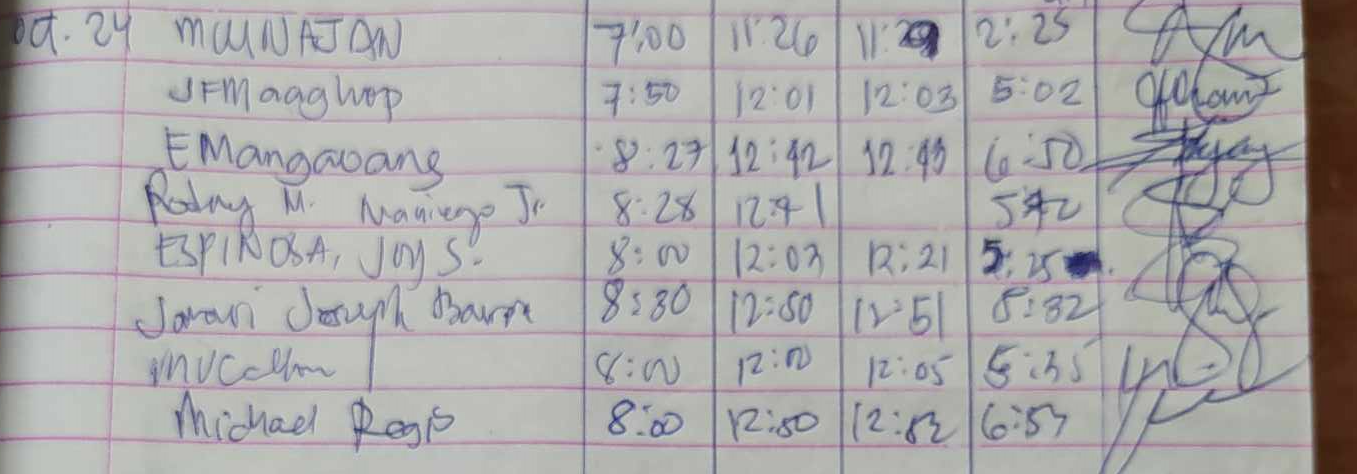 Oct. 24 MCUNAJAN 7:00 11:26 11:29 2:25
JFMagghop 7:50 12:01 12:03 5:02
EMangaoang 8:27 12:42 12:43 6:50
Rodny M. Maniego Jr. 8:28 12:41 5:42
ESPINOSA, JOY S. 8:00 12:03 12:21 5:25
Joseph 8:30 12:50 12:51 8:32
8:00 12:00 12:05 5:35
Michael Regis 8:00 12:50 12:52 6:53